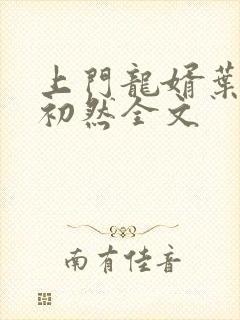 上門龍婿葉
初然全文
南有佳音